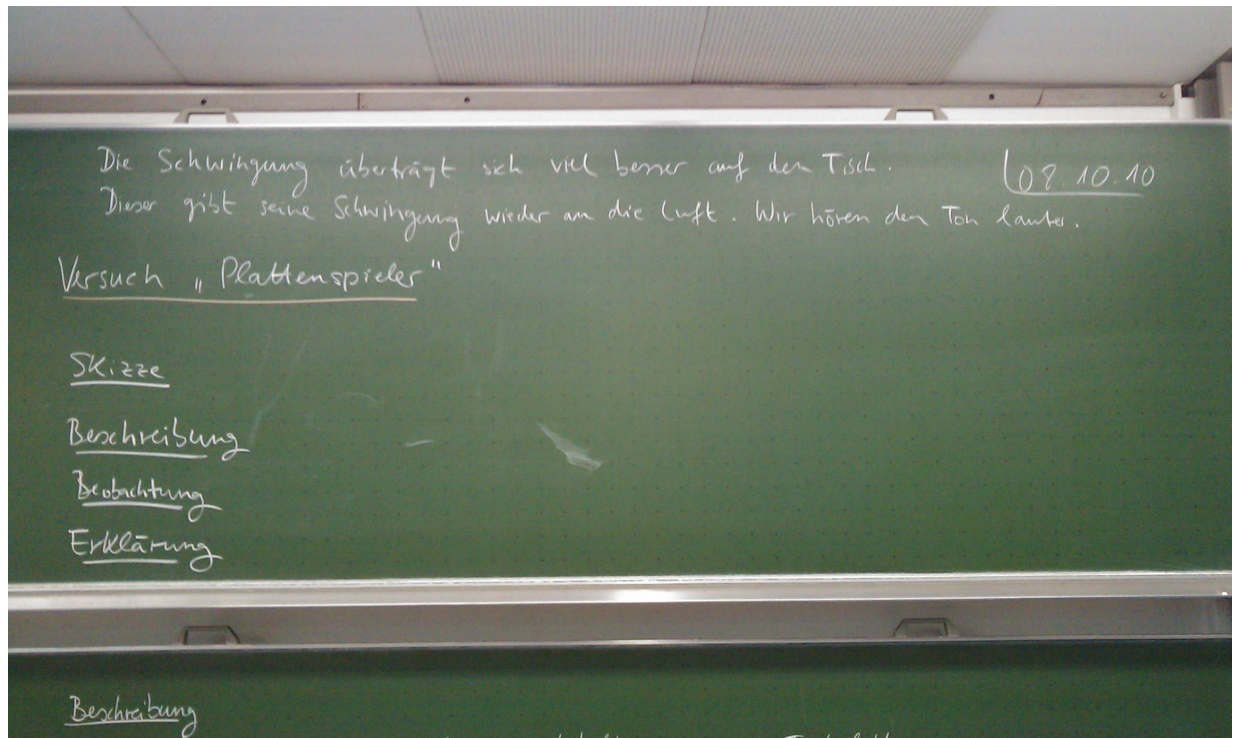 Die Schwingung überträgt sich viel besser auf den Tisch.
08.10.10
Dieser gibt seine Schwingung wieder an die Luft. Wir hören den Ton lauter.
Versuch „Plattenspieler“
Skizze
Beschreibung
Beobachtung
Erklärung
Beschreibung